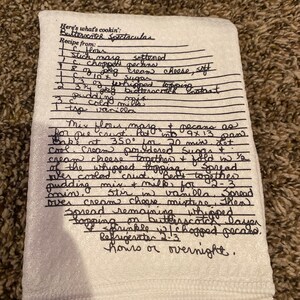 Here's what's cookin':
Butterscotch Spectacular
Recipe from:
1 C flour
1 stick marg softened
1 C chopped pecans
pkg cream cheese, soft
1 C 10x sugar
whipped topping
pkg butterscotch instant
pudding mix
3 C cold milk
1 tsp vanilla
Mix flour, marg & pecans as
for pie crust. Pat into 9x13 pan
Bake at 350° for 20 min. Let
cool. Cream powdered sugar &
cream cheese together & fold in 1/2
of the whipped topping. Spread
over cooled crust. Beat together
pudding mix & milk for 2-3
min. Stir in vanilla. Spread
over cream cheese mixture, then
spread remaining whipped
topping on butterscotch layer
& sprinkle w/ chopped pecans.
Refrigerate 2-3
hours or overnight.